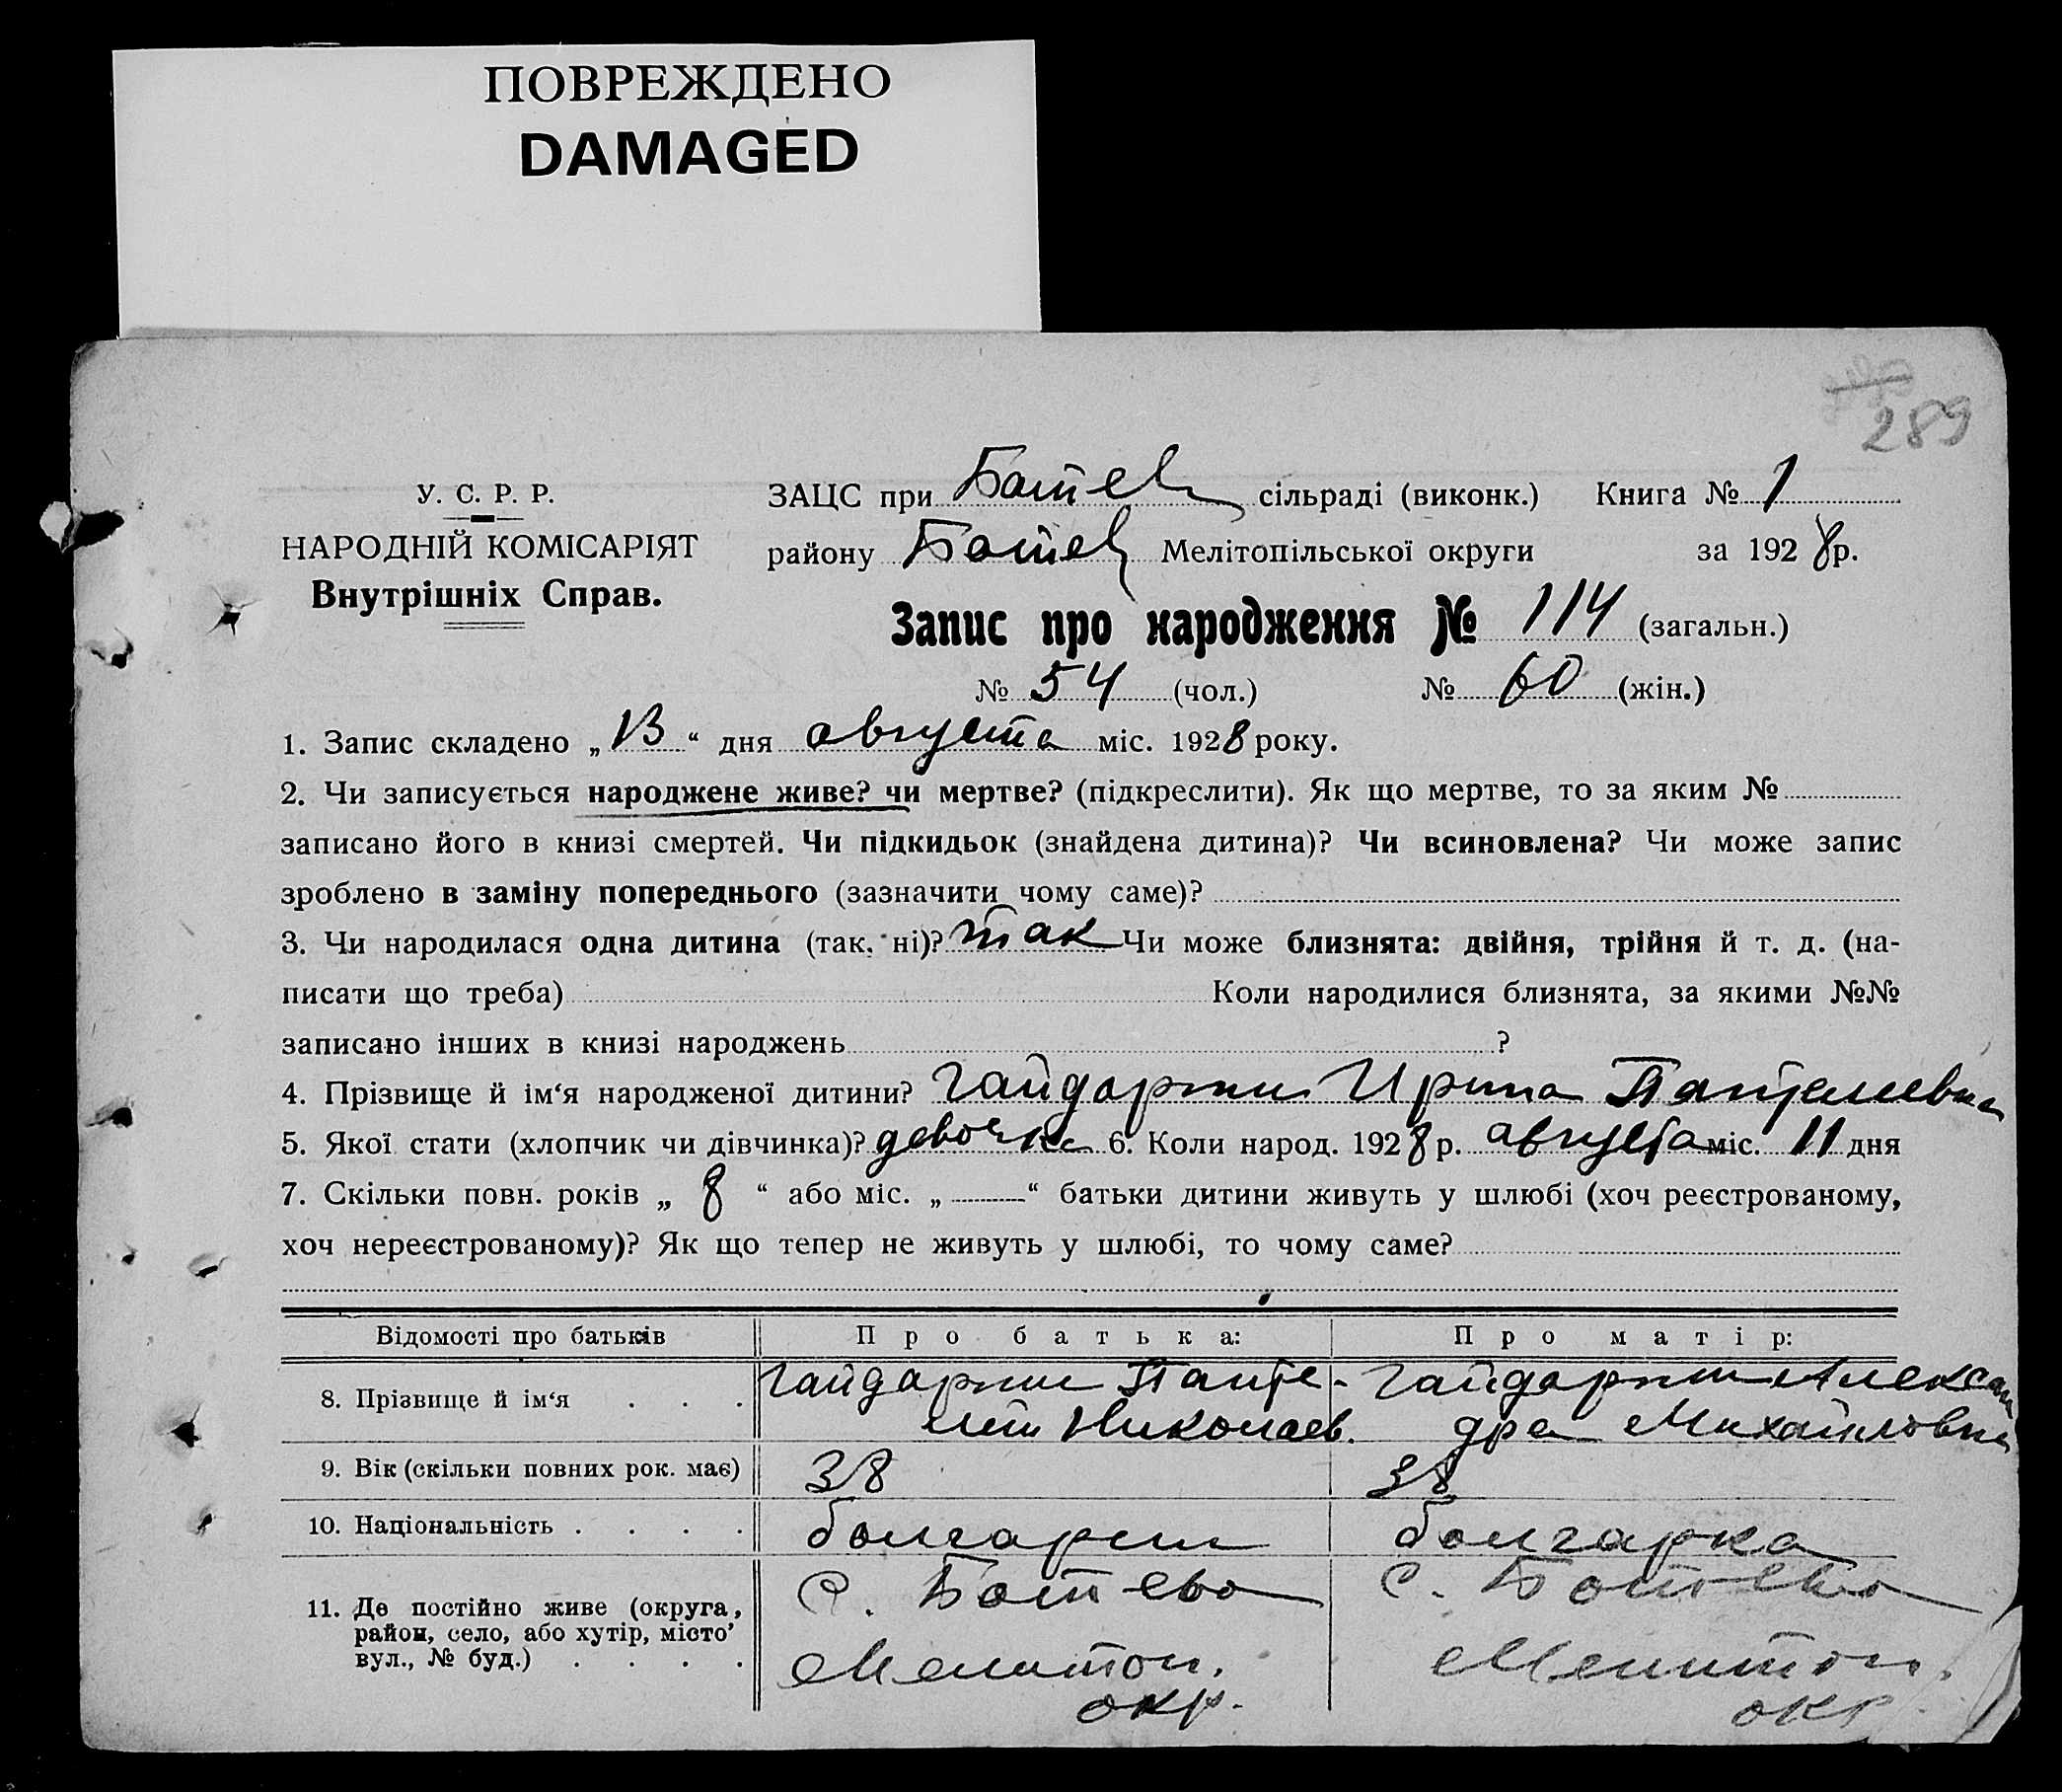 ПОВРЕЖДЕНО
DAMAGED
289
У. С. Р. Р.
НАРОДНІЙ КОМІСАРІЯТ
Внутрішніх Справ.
ЗАЦС при Ботев сільраді (виконк.) Книга № 1
району Ботев Мелітопільської округи за 1928 р.
Запис про народження № 114 (загальн.)
№ 54 (чол.) № 60 (жін.)
1. Запис складено „13“ дня августа міс. 1928 року.
2. Чи записується народжене живе? чи мертве? (підкреслити). Як що мертве, то за яким №
записано його в книзі смертей. Чи підкидьок (знайдена дитина)? Чи всиновлена? Чи може запис
зроблено в заміну попереднього (зазначити чому саме)?
3. Чи народилася одна дитина (так, ні)? так Чи може близнята: двійня, трійня й т. д. (на-
писати що треба) Коли народилися близнята, за якими №№
записано інших в книзі народжень ?
4. Прізвище й ім‘я народженої дитини? Гайдаржи Ирина Пантелеевна
5. Якої стати (хлопчик чи дівчинка)? девочка 6. Коли народ. 1928 р. августа міс. 11 дня
7. Скільки повн. років „ 8 “ або міс. „ — “ батьки дитини живуть у шлюбі (хоч реєстрованому,
хоч нереєстрованому)? Як що тепер не живуть у шлюбі, то чому саме?
Відомості про батьків Про батька: Про матір:
8. Прізвище й ім‘я . . . Гайдаржи Панте- Гайдаржи Алексан
лей Николаев. дра Михайловна
9. Вік (скільки повних рок. має) 38 38
10. Національність . . . . болгарин болгарка
11. Де постійно живе (округа, с. Ботево с. Ботево
район, село, або хутір, місто,
вул., № буд.) . . . . Мелитоп. Мелитоп.
окр. окр.